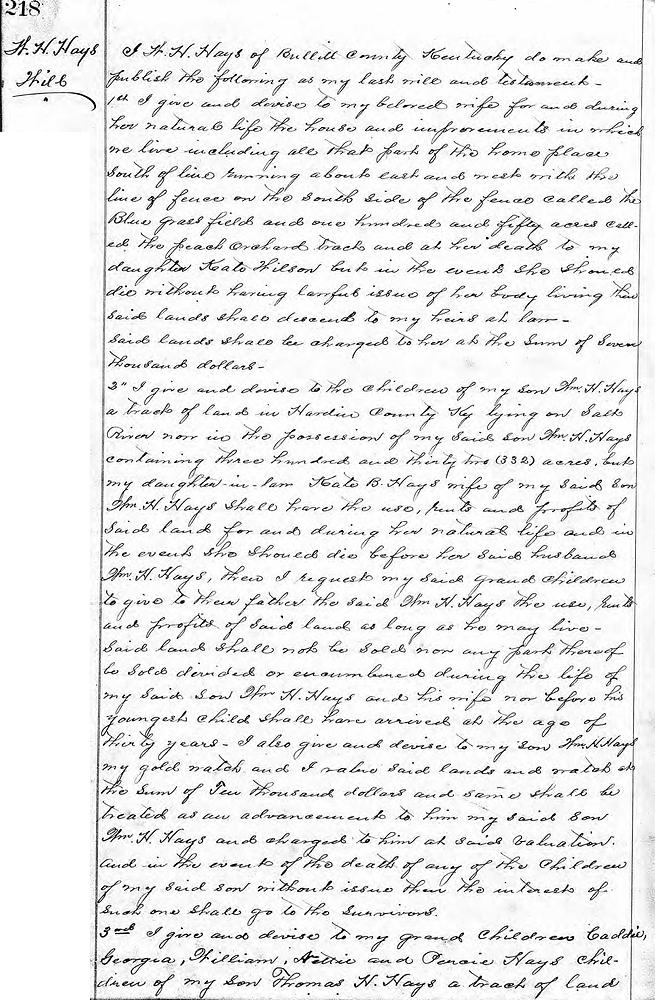 218
W. H. Hays
Will
I W. H. Hays of Bullitt County Kentucky do make and
publish the following as my last will and testament -
1st I give and devise to my beloved wife for and during
her natural life the house and improvements in which
we live including all that part of the home place
South of line running about east and west with the
line of fence on the South side of the fence called the
Blue grass field and one hundred and fifty acres call-
ed the peach Orchard tract and at her death to my
daughter Kate Wilson but in the event she should
die without having lawful issue of her body living then
said lands shall descend to my heirs at law -
Said lands shall be charged to her at the Sum of Seven
thousand dollars -
2" I give and devise to the children of my son Wm. H. Hays
a track of land in Hardin County Ky lying on Salt
River now in the possession of my said son Wm. H. Hays
containing three hundred and thirty two (332) acres, but
my daughter-in-law Kate B. Hays wife of my said Son
Wm. H. Hays shall have the use, rents and profits of
said land for and during her natural life and in
the event she should die before her said husband
Wm. H. Hays, then I request my said grand children
to give to their father the said Wm H. Hays the use, rents
and profits of said land as long as he may live -
Said land shall not be sold nor any part thereof
be sold divided or encumbered during the life of
my said son Wm H. Hays and his wife nor before his
youngest child shall have arrived at the age of
thirty years - I also give and devise to my son Wm. H. Hays
my gold watch and I value said lands and watch at
the sum of Ten thousand dollars and same shall be
treated as an advancement to him my said son
Wm. H. Hays and charged to him at said valuation.
and in the event of the death of any of the children
of my said son without issue then the interest of
such one shall go to the survivors.
3rd I give and devise to my grand children Caddie,
Georgia, William, Nettie and Percie Hays chil-
dren of my Son Thomas H. Hays a track of land